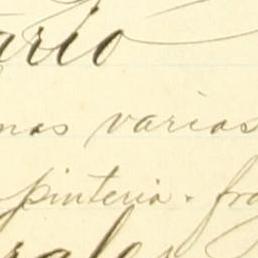 ario
nas varias
pinteria. fra
rales